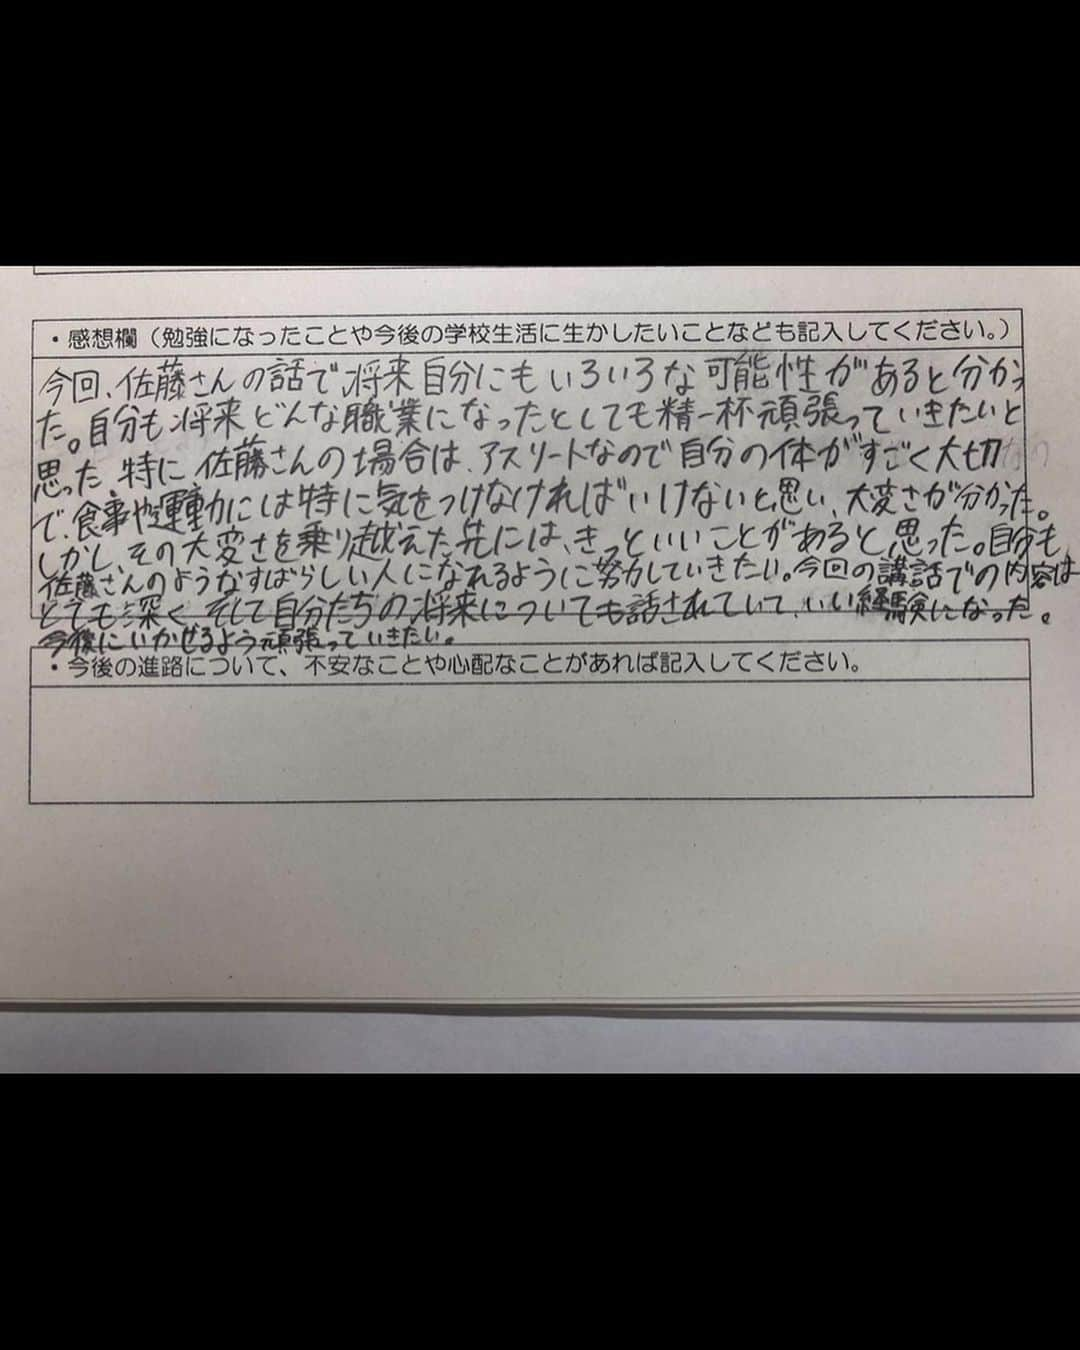 ・感想欄（勉強になったことや今後の学校生活に生かしたいことなども記入してください。）
今回、佐藤さんの話で将来自分にもいろいろな可能性があると分かっ
た。自分も将来どんな職業になったとしても精一杯頑張っていきたいと
思った。特に、佐藤さんの場合は、アスリートなので自分の体がすごく大切
で、食事や運動には特に気をつけなければいけないと思い、大変さが分かった。
しかし、その大変さを乗り越えた先には、きっといいことがあると思った。自分も、
佐藤さんのようなすばらしい人になれるように努力していきたい。今回の講話での内容は
とても深く、そして自分たちの将来についても話されていて、いい経験になった。
今後にいかせるよう頑張っていきたい。
・今後の進路について、不安なことや心配なことがあれば記入してください。